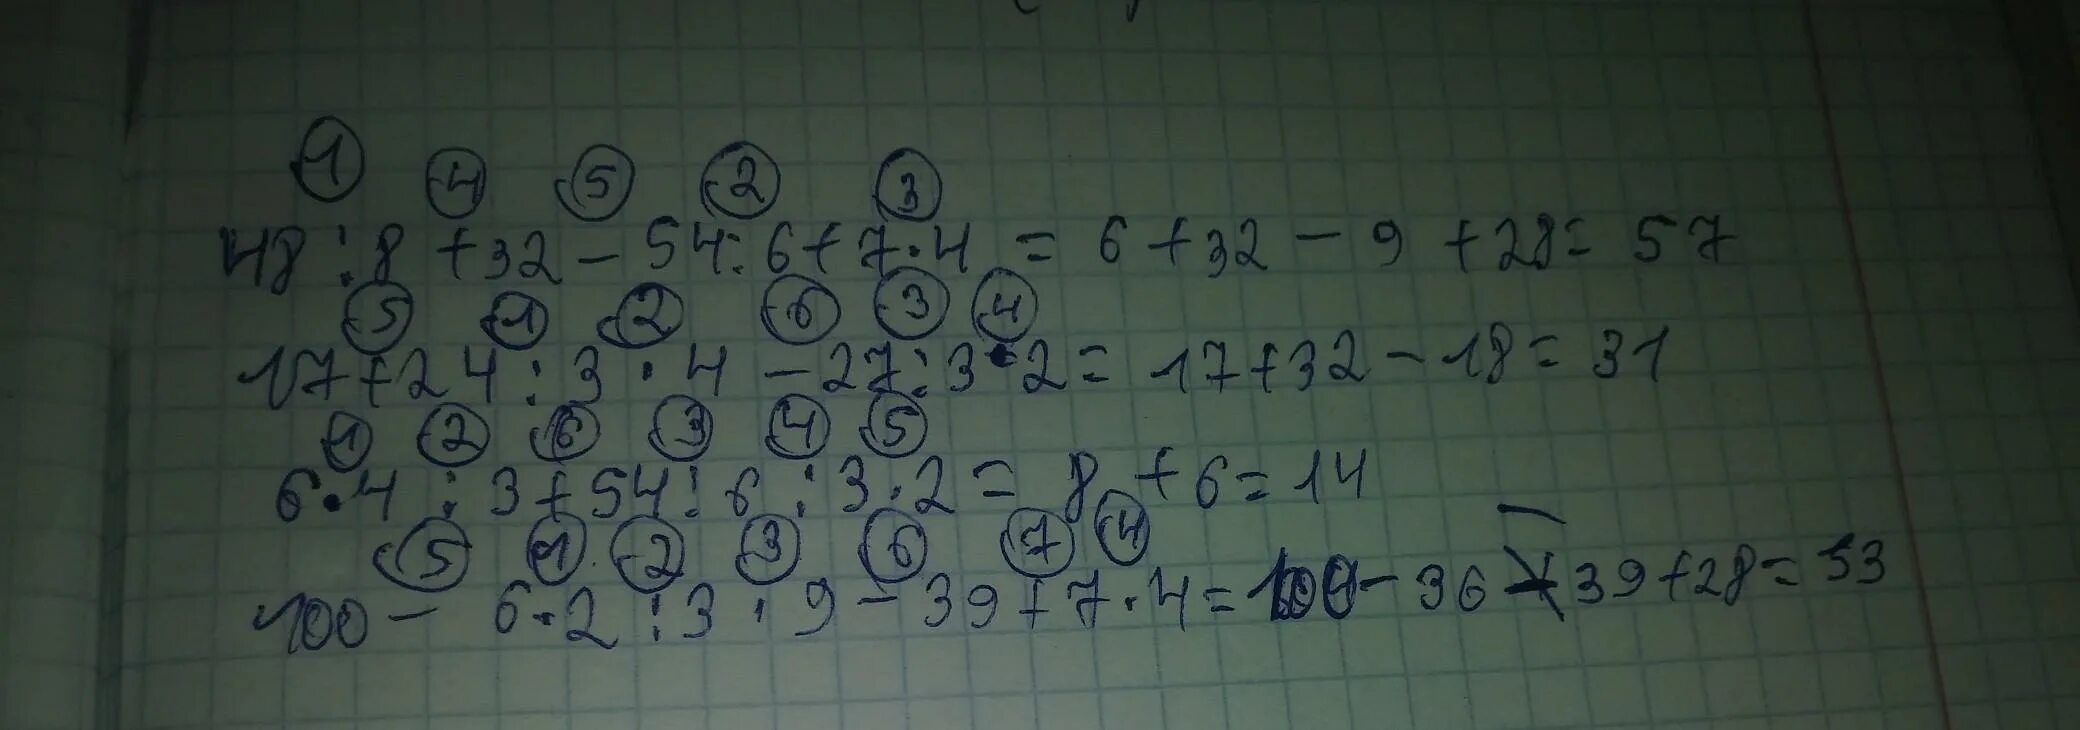 1 4 5 2 3
48:8+32-54:6+7·4=6+32-9+28=57
5 1 2 6 3 4
17+24:3·4-27:3·2=17+32-18=31
1 2 6 3 4 5
6·4:3+54:6:3·2=8+6=14
5 1 2 3 6 7 4
100-6·2:3·9-39+7·4=100-36-39+28=53